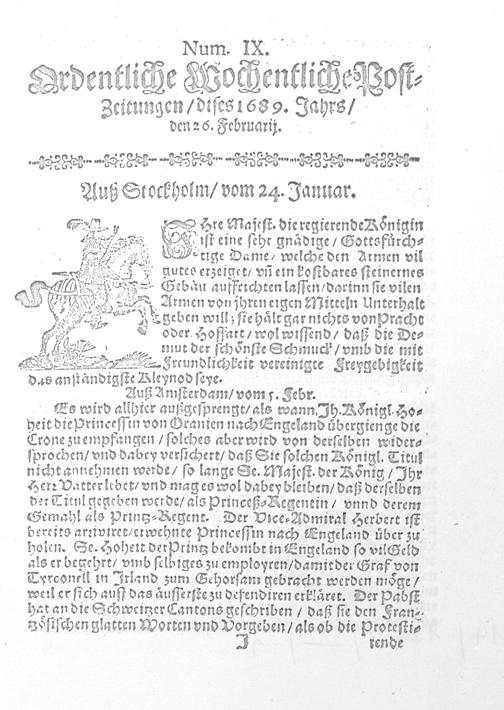 Num. IX.
Ordentliche Wochentliche Post-
Zeitungen / dises 1689. Jahrs /
den 26. Februarij.
Auß Stockholm / vom 24. Januar.
IHre Majest. die regierende Königin
ist eine sehr gnädige / Gottsfürch-
tige Dame / welche den Armen vil
gutes erzeiget / vñ ein kostbares steinernes
Gebäu auffrichten lassen / darinn sie vilen
Armen von jhren eigen Mitteln Unterhalt
geben will; sie hält gar nichts von Pracht
oder Hoffart / wol wissend / daß die De-
mut der schönste Schmuck / vnd die mit
Freundlichkeit vereinigte Freygebigkeit
das anständigste Kleynod seye.
Auß Amsterdam / vom 5. Febr.
Es wird allhier außgesprengt / als wann Jh. Königl. Ho-
heit die Princessin von Oranien nach Engeland übergienge die
Crone zu empfangen / solches aber wird von derselben wider-
sprochen / vnd dabey versichert / daß Sie solchen Königl. Titul
nicht annehmen werde / so lange Se. Majest. der König / Jhr
Herz Vatter lebet / vnd mag es wol dabey bleiben / daß derselben
der Titul gegeben werde / als Princeß-Regentin / vnnd derem
Gemahl als Printz-Regent. Der Vice-Admiral Herbert ist
bereits arriviret / erwehnte Princessin nach Engeland über zu
holen. Se. Hoheit der Printz bekombt in Engeland so vil Geld
als er begehrt / vmb selbiges zu employren / damit der Graf von
Tyrconell in Irland zum Gehorsam gebracht werden möge /
weil er sich auff das äusserste zu defendiren erkläret. Der Pabst
hat an die Schweitzer Cantons geschriben / daß sie den Fran-
tzösischen glatten Worten vnd Vorgeben / als ob die Protesti-
I rende